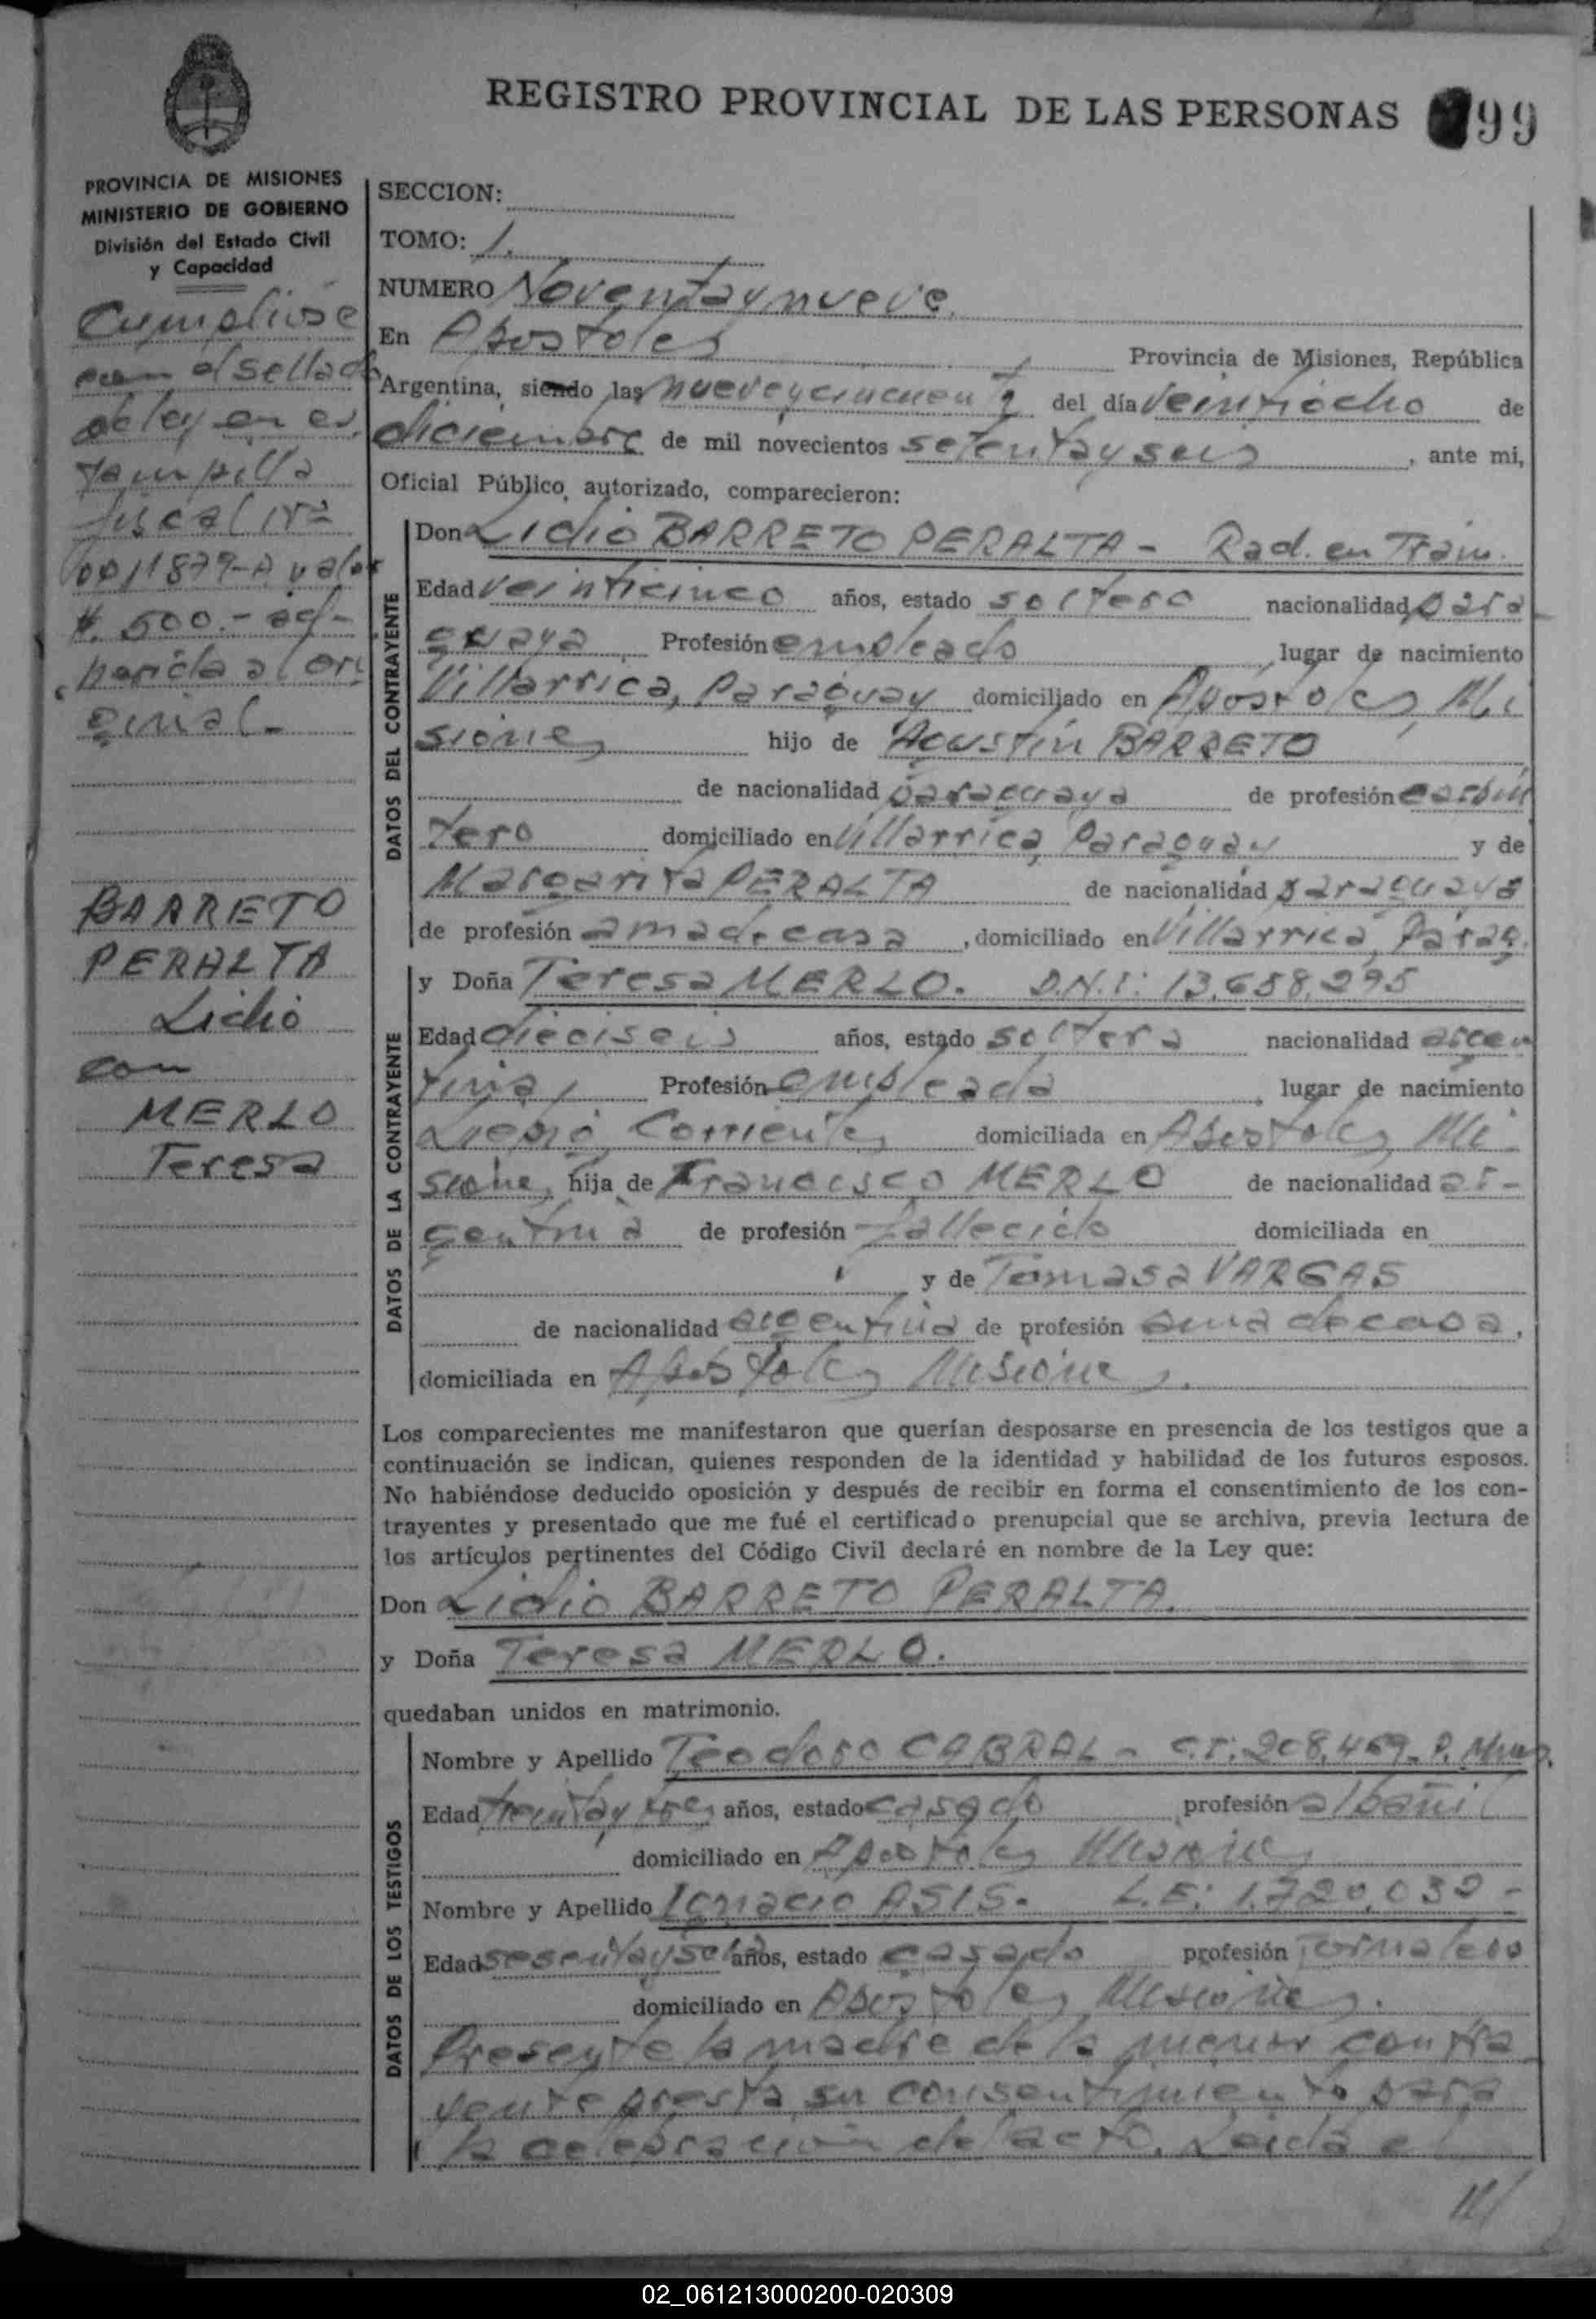 REGISTRO PROVINCIAL DE LAS PERSONAS 99
PROVINCIA DE MISIONES
MINISTERIO DE GOBIERNO
División del Estado Civil
y Capacidad
Cumplióse
con el sellado
de ley en es
tampilla
fiscal Nº
0011879-A valor
$. 500.- ad-
herida al ori
ginal-
BARRETO
PERALTA
Lidio
con
MERLO
Teresa
SECCION:
TOMO: 1.
NUMERO Noventa y nueve.
En Apostoles Provincia de Misiones, República
Argentina, siendo las nueve y cincuenta del día veintiocho de
diciembre de mil novecientos setenta y seis, ante mi,
Oficial Público autorizado, comparecieron:
DATOS DEL CONTRAYENTE
Don Lidio BARRETO PERALTA - Rad. en Trám.
Edad veinticinco años, estado soltero nacionalidad para
guaya Profesión empleado lugar de nacimiento
Villarrica, Paraguay domiciliado en Apóstoles, Mi
siones hijo de Agustín BARRETO
de nacionalidad paraguaya de profesión carpin
tero domiciliado en Villarrica, Paraguay y de
Margarita PERALTA de nacionalidad paraguaya
de profesión ama de casa, domiciliado en Villarrica, Parag.
DATOS DE LA CONTRAYENTE
y Doña Teresa MERLO. D.N.I: 13.658.295
Edad dieciseis años, estado soltera nacionalidad argen
tina, Profesión empleada, lugar de nacimiento
Liebig Corrientes domiciliada en Apostoles, Mi
siones, hija de Francisco MERLO de nacionalidad ar-
gentina de profesión fallecido domiciliada en
y de Tomasa VARGAS
de nacionalidad argentina de profesión ama de casa,
domiciliada en Apostoles Misiones.
Los comparecientes me manifestaron que querían desposarse en presencia de los testigos que a
continuación se indican, quienes responden de la identidad y habilidad de los futuros esposos.
No habiéndose deducido oposición y después de recibir en forma el consentimiento de los con-
trayentes y presentado que me fué el certificado prenupcial que se archiva, previa lectura de
los artículos pertinentes del Código Civil declaré en nombre de la Ley que:
Don Lidio BARRETO PERALTA.
y Doña Teresa MERLO.
quedaban unidos en matrimonio.
DATOS DE LOS TESTIGOS
Nombre y Apellido Teodoro CABRAL - C.I: 208.469- P. Mnes.
Edad treinta y tres años, estado casado profesión albañil
domiciliado en Apostoles Misiones
Nombre y Apellido Ignacio ASIS. L.E: 1.720.032-
Edad sesenta y seis años, estado casado profesión jornalero
domiciliado en Apostoles Misiones.
Presente la madre de la menor contra
yente presta su consentimiento para
la celebración del acto. Leída el
///
02_061213000200-020309